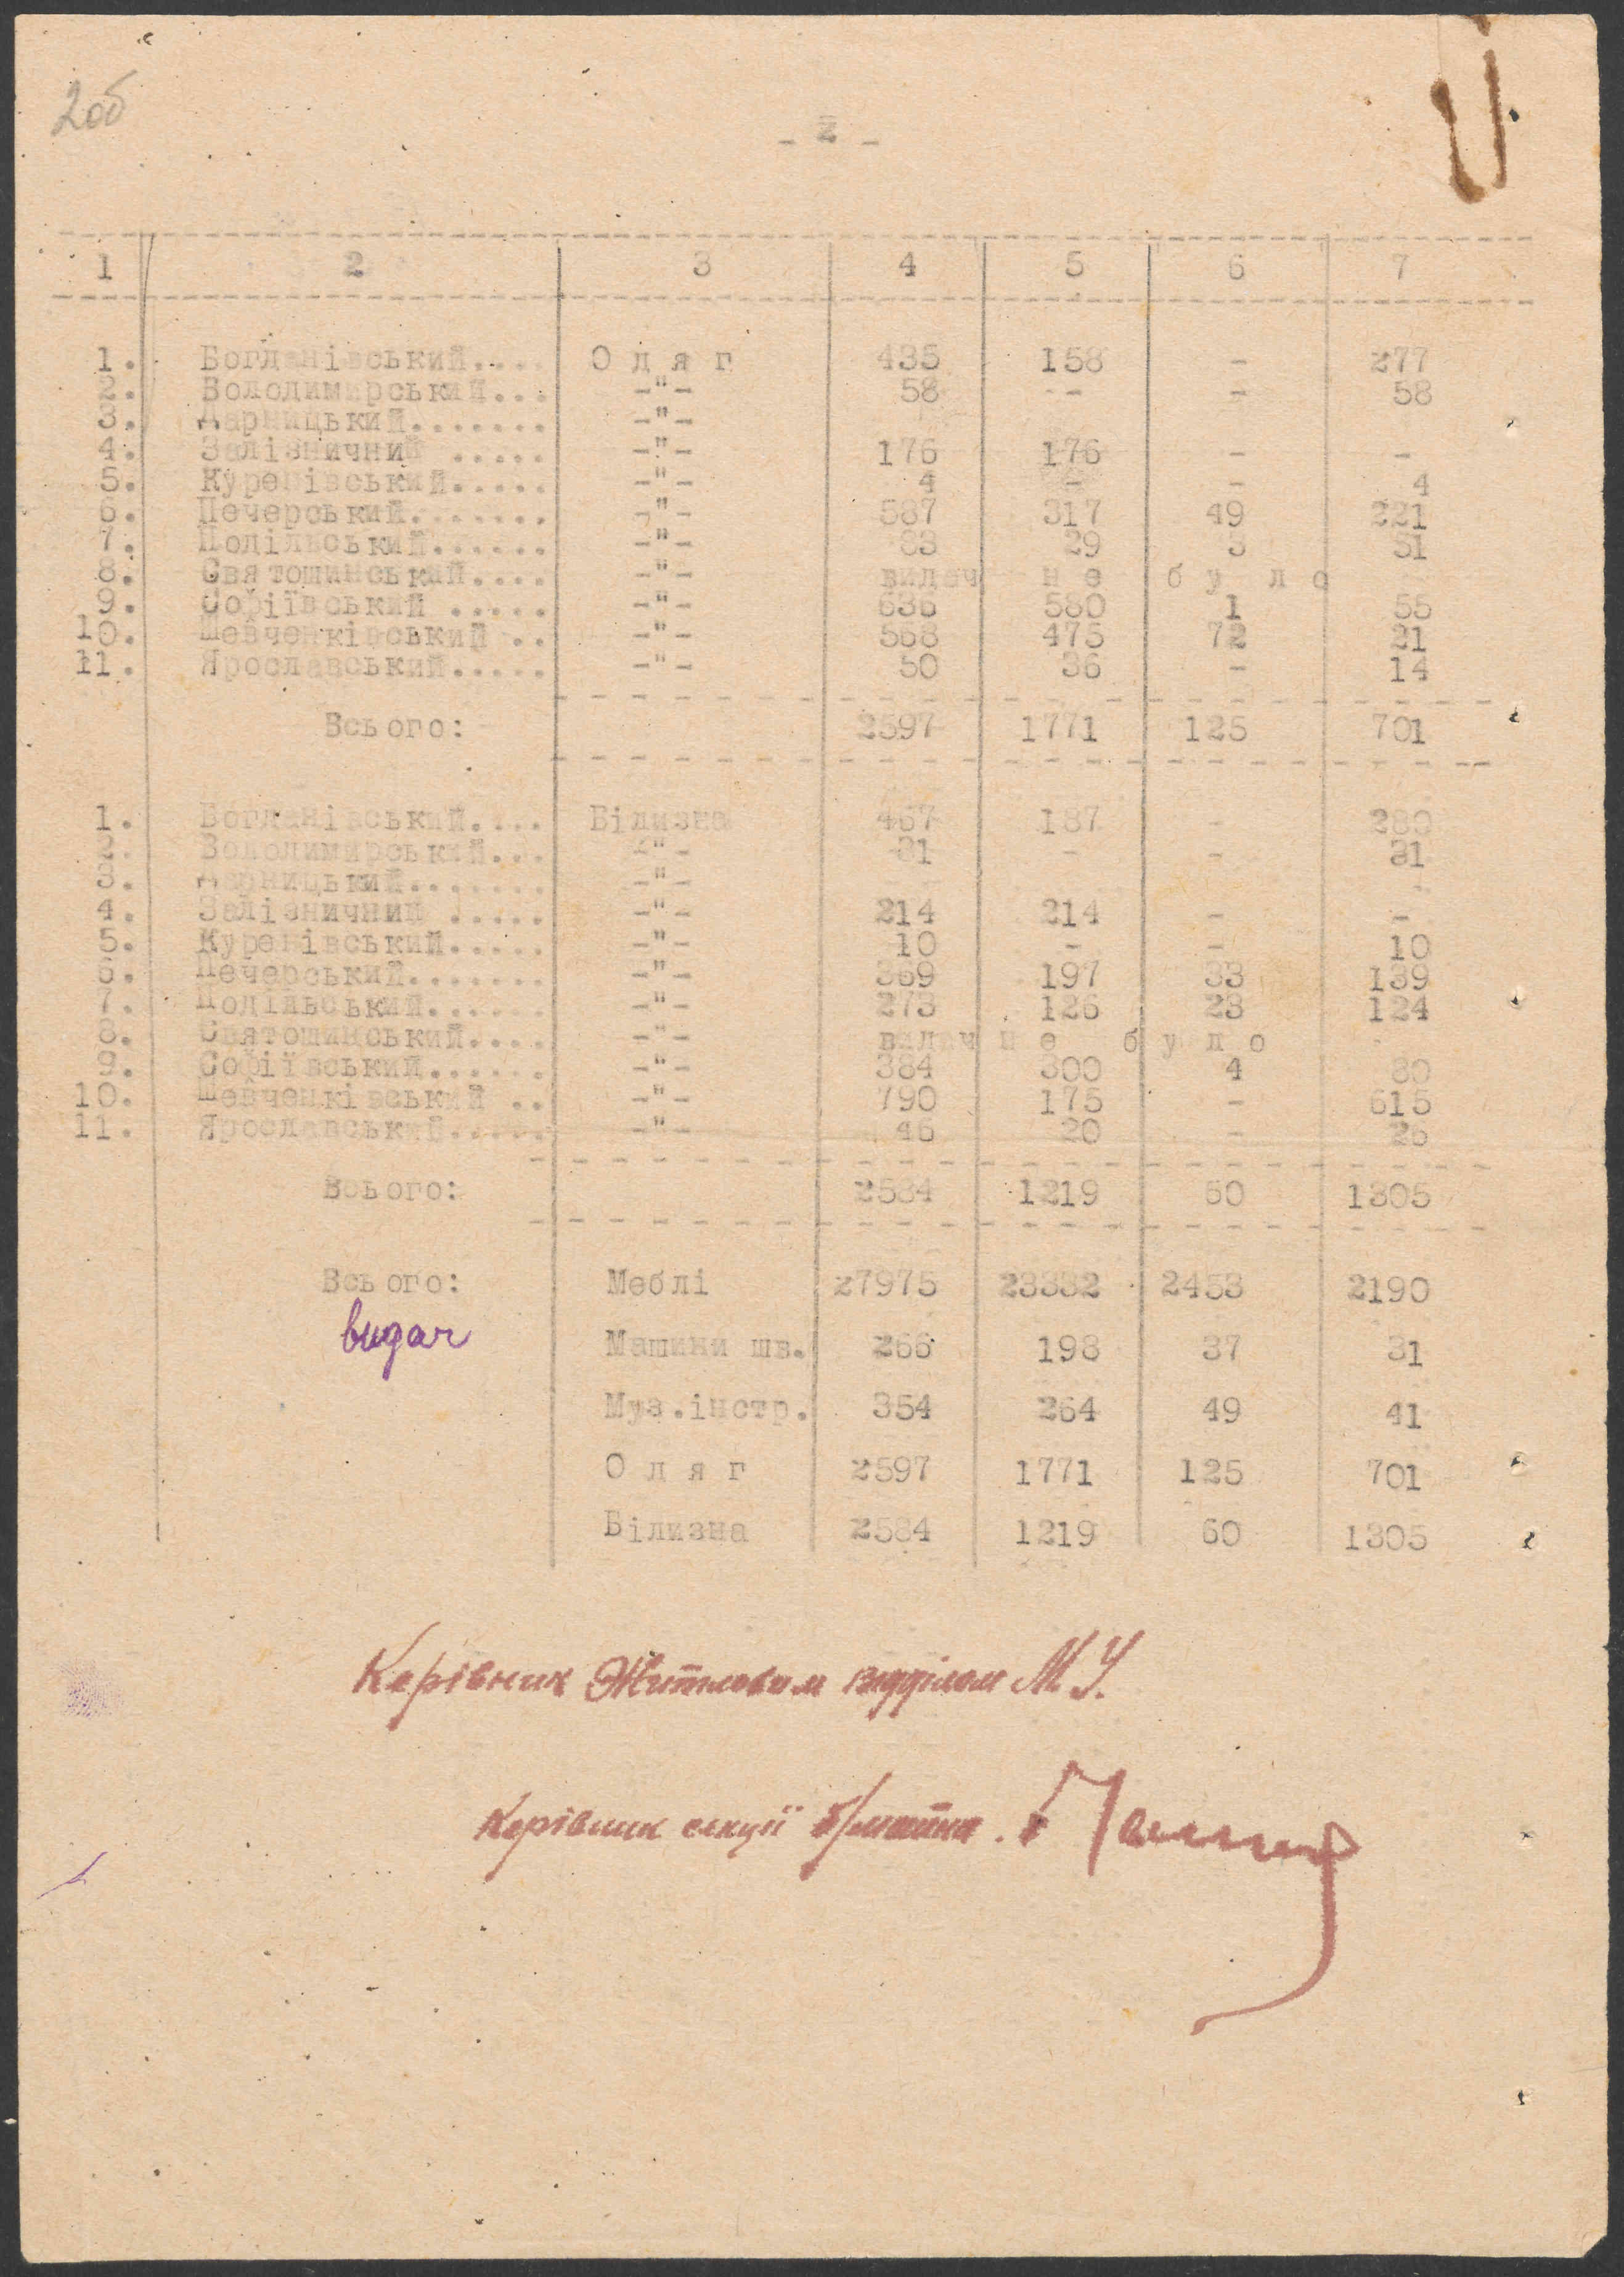 2об
- 2 -
1 2 3 4 5 6 7
1. Богданівський.... О д я г 435 158 - 277
2. Володимирський... -"- 58 -- - 58
3. Дарницький....... -"-
4. Залізничний ..... -"- 176 176 - -
5. Куренівський..... -"- 4 - - 4
6. Печерський....... -"- 587 317 49 221
7. Подільський...... -"- 83 29 3 51
8. Святошинський.... -"- видач н е б у л о
9. Софіївський ..... -"- 636 580 1 55
10. Шевченківський .. -"- 568 475 72 21
11. Ярославський..... -"- 50 36 - 14
Всього: 2597 1771 125 701
1. Богданівський.... Білизна 467 187 - 280
2. Володимирський... -"- 31 - - 31
3. Дарницький....... -"-
4. Залізничний ..... -"- 214 214 - -
5. Куренівський..... -"- 10 - - 10
6. Печерський....... -"- 369 197 33 139
7. Подільський...... -"- 273 126 23 124
8. Святошинський.... -"- видач н е б у л о
9. Софіївський...... -"- 384 300 4 80
10. Шевченківський .. -"- 790 175 - 615
11. Ярославський..... -"- 46 20 - 26
Всього: 2584 1219 60 1305
Всього: Меблі 27975 23332 2453 2190
видач Машини шв. 266 198 37 31
Муз.інстр. 354 264 49 41
О д я г 2597 1771 125 701
Білизна 2584 1219 60 1305
Керівник Житловим відділом М.У.
Керівник секції б/майна.